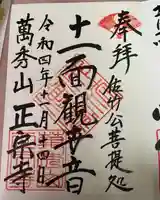 奉拝
佐竹公菩提処
十一面観世音
令和四年十二月十四日
萬秀山正宗寺